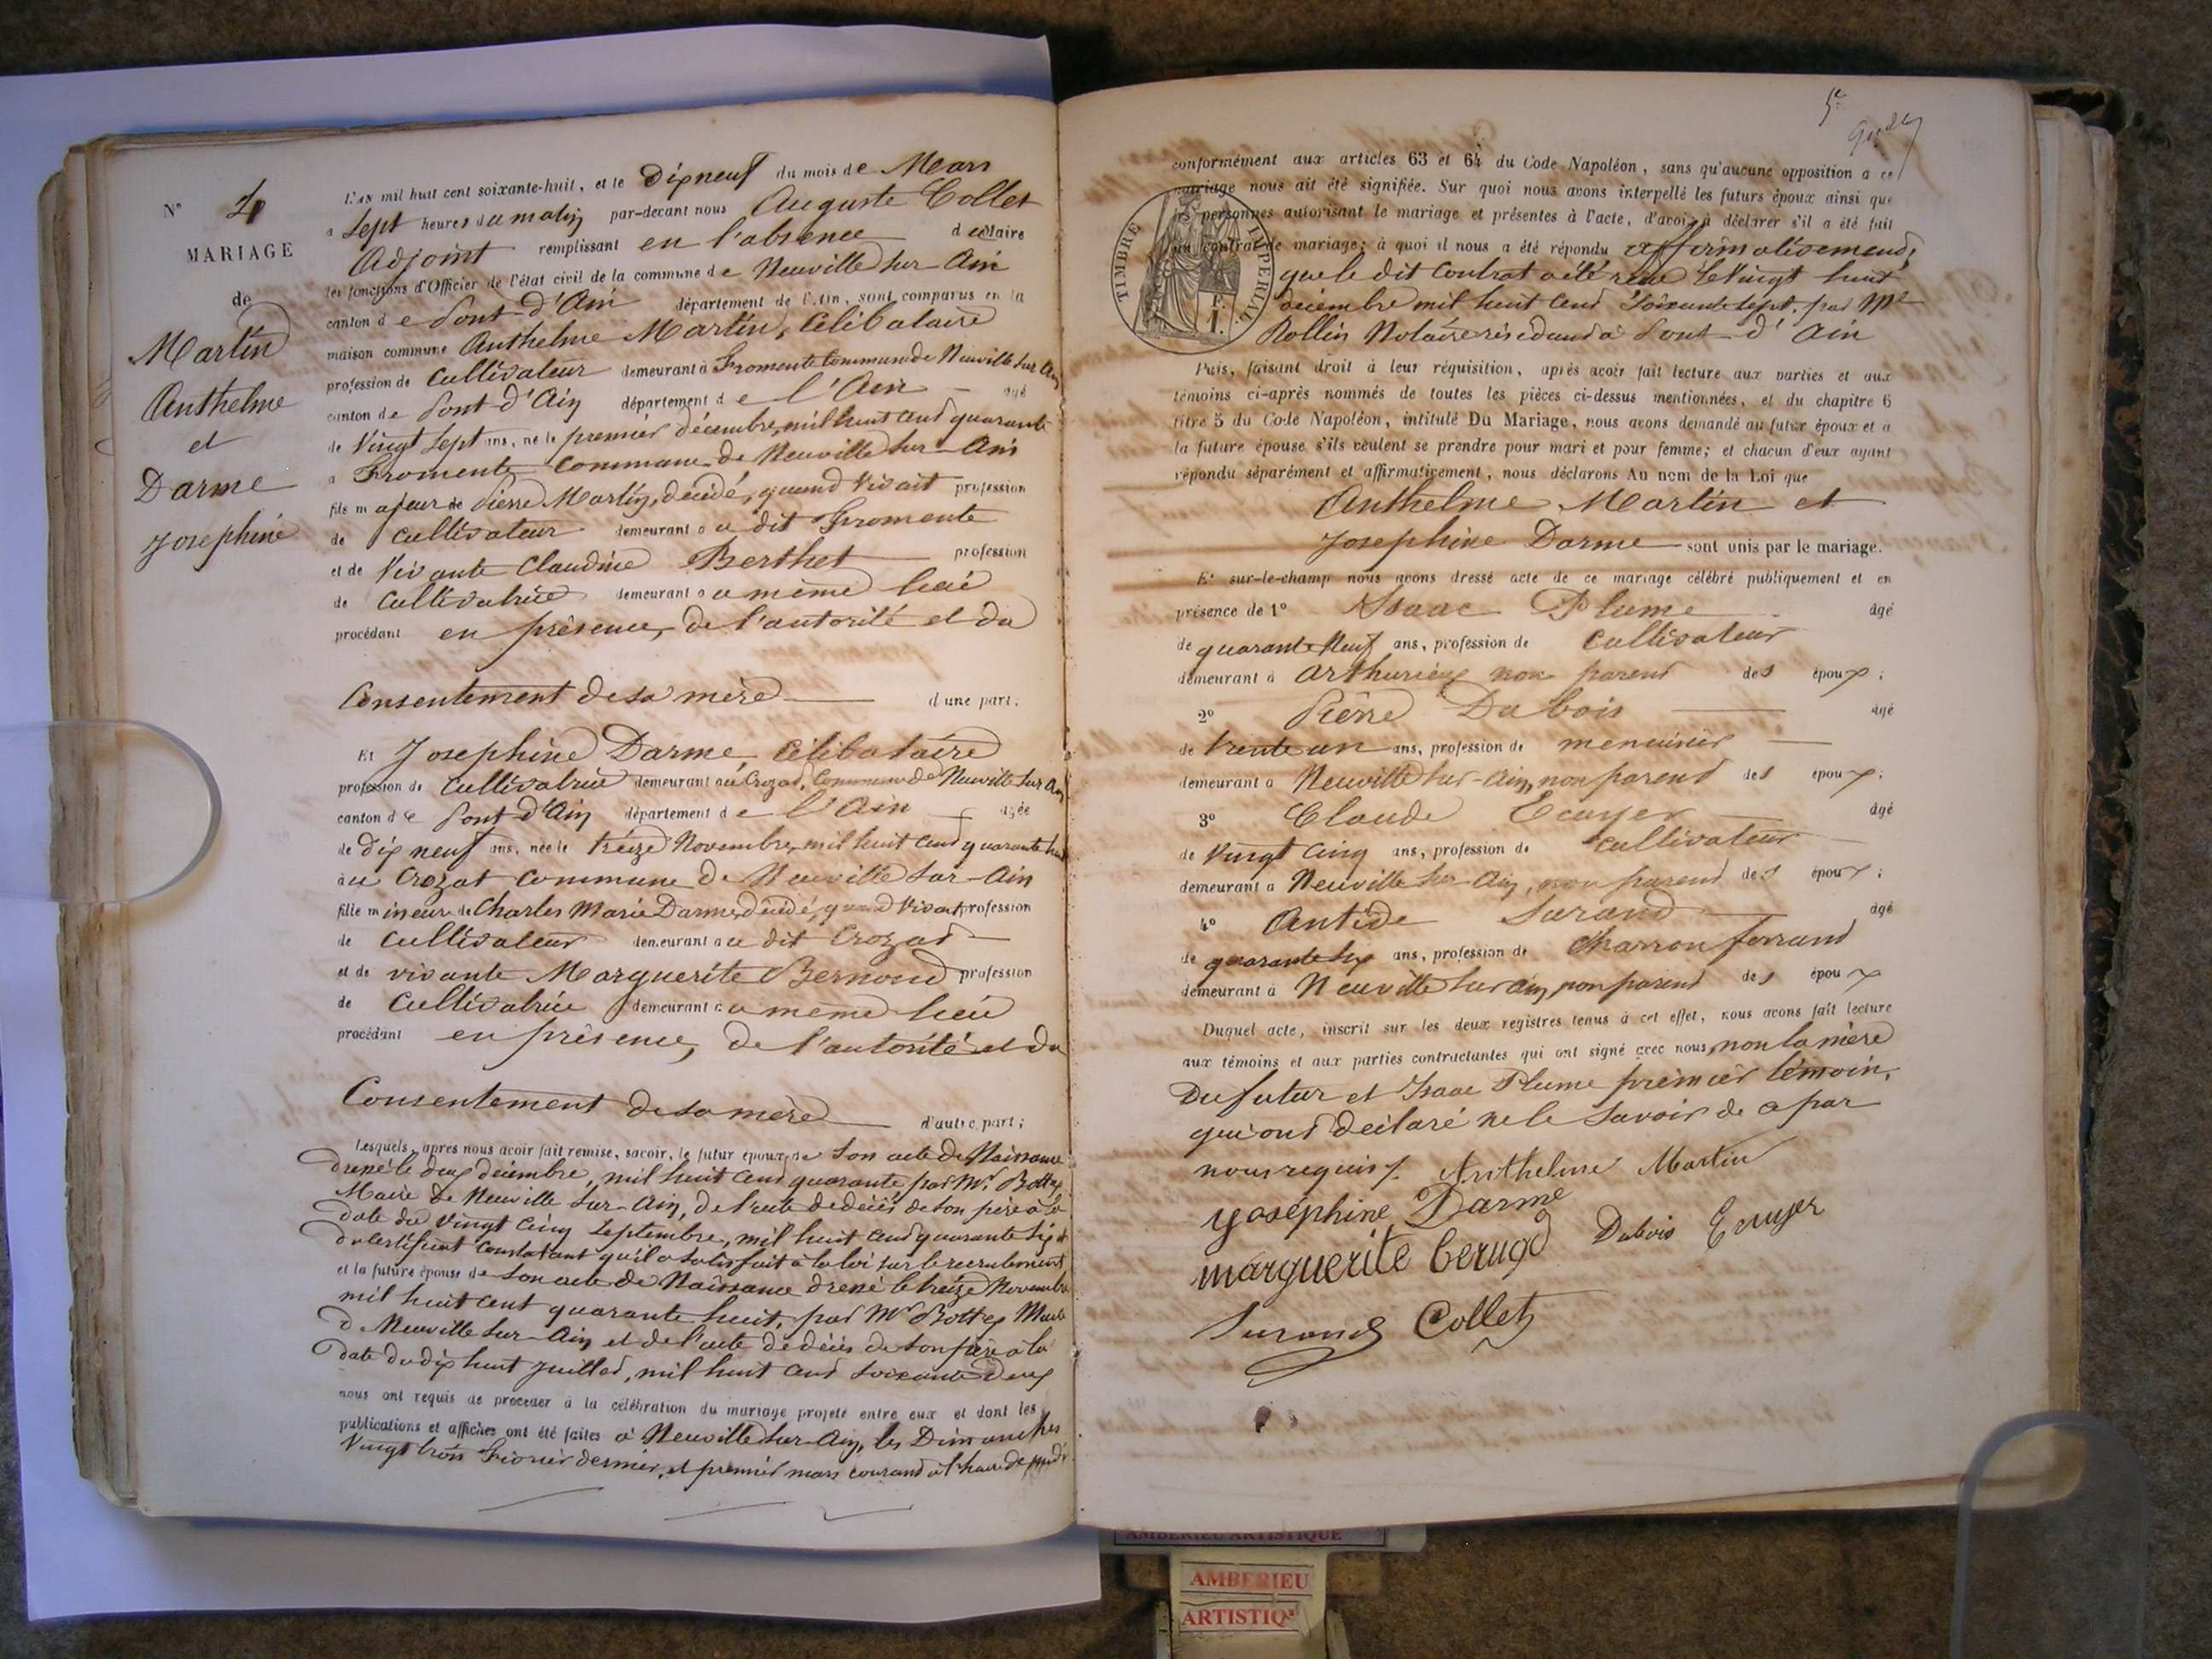 N° 4
MARIAGE
de
Martin
Anthelme
et
Darme
Josephine
L'AN mil huit cent soixante-huit, et le Dix neuf du mois de Mars
a Sept heures du matin par-devant nous Auguste Collet
Adjoint remplissant en l'absence du Maire
les fonctions d'Officier de l'état civil de la commune de Neuville sur Ain
canton de Pont-d'Ain département de l'Ain, sont comparus en la
maison commune Anthelme Martin, Célibataire
profession de Cultivateur demeurant à Fromente Commune de Neuville sur Ain
canton de Pont-d'Ain département de l'Ain âgé
de Vingt Sept ans, né le premier décembre, mil huit cent quarante
a Fromente Commune de Neuville sur Ain
fils majeur de Pierre Martin, décédé, quand vivait profession
de cultivateur demeurant au dit Fromente
et de Vivante Claudine Berthet profession
de Cultivatrice demeurant au même lieu
procédant en présence, de l'autorité et du
Consentement de sa mère d'une part;
Et Josephine Darme, Célibataire
profession de Cultivatrice demeurant au Crozat, Commune de Neuville sur Ain
canton de Pont-d'Ain département de l'Ain âgée
de dix neuf ans, née le treize Novembre, mil huit cent quarante huit
au Crozat Commune de Neuville sur-Ain
fille mineure de Charles Marie Darme, décédé, quand Vivait profession
de cultivateur demeurant au dit Crozat
et de vivante Marguerite Bernoud profession
de Cultivatrice demeurant au même lieu
procédant en présence, de l'autorité et du
Consentement de sa mère d'autre part;
Lesquels, après nous avoir fait remise, savoir, le futur époux, de Son acte de Naissance
dressé le deux décembre, mil huit cent quarante par Mr. Bottex
Maire de Neuville sur-Ain, de l'acte de décès de son père à la
date du vingt cinq Septembre, mil huit cent quarante six et
du certificat constatant qu'il a satisfait à la loi sur le recrutement,
et la future épouse de Son acte de Naissance dressé le treize Novembre
mil huit cent quarante huit, par Mr Bottex Maire
de Neuville sur-Ain et de l'acte de décès de son père à la
date du dix huit juillet, mil huit cent soixante deux
nous ont requis de procéder à la célébration du mariage projeté entre eux et dont les
publications et affiches ont été faites à Neuville sur-Ain, les Dimanches
Vingt trois Février dernier, et premier mars courant à l'heure de midi
5e
conformément aux articles 63 et 64 du Code Napoléon, sans qu'aucune opposition a ce
mariage nous ait été signifiée. Sur quoi nous avons interpellé les futurs époux ainsi que
les personnes autorisant le mariage et présentes à l'acte, d'avoir à déclarer s'il a été fait
un contrat de mariage; à quoi il nous a été répondu affirmativement,
que le dit Contrat a été reçu le Vingt huit
décembre mil huit cent Soixante Sept, par Me
Rollin Notaire résidant à Pont-d'Ain
TIMBRE IMPERIAL
Puis, faisant droit à leur réquisition, après avoir fait lecture aux parties et aux
témoins ci-après nommés de toutes les pièces ci-dessus mentionnées, et du chapitre 6
titre 5 du Code Napoléon, intitulé Du Mariage, nous avons demandé au futur époux et a
la future épouse s'ils veulent se prendre pour mari et pour femme; et chacun d'eux ayant
répondu séparément et affirmativement, nous déclarons Au nom de la Loi que
Anthelme Martin et
Josephine Darme sont unis par le mariage.
Et sur-le-champ nous avons dressé acte de ce mariage célébré publiquement et en
présence de 1° Isaac Plume âgé
de quarante Neuf ans, profession de Cultivateur
demeurant à arthurieux non parent des époux;
2° Pierre Dubois âgé
de trente un ans, profession de menuisier
demeurant a Neuville sur-Ain, non parent des époux;
3° Claude Ecuyer âgé
de Vingt Cinq ans, profession de cultivateur
demeurant a Neuville sur-Ain, non parent des époux;
4° Antide Surand âgé
de quarante six ans, profession de Charron ferrand
demeurant à Neuville sur ain, non parent des époux
Duquel acte, inscrit sur les deux registres tenus à cet effet, nous avons fait lecture
aux témoins et aux parties contractantes qui ont signé avec nous, non la mère
Du futur et Isaac Plume premier témoin,
qui ont déclaré ne le Savoir de a par
nous requis /. Anthelme Martin
Joséphine Darme
marguerite Dubois Ecuyer
Surand Collet
AMBERIEU ARTISTIQUE
AMBERIEU
ARTISTIQ